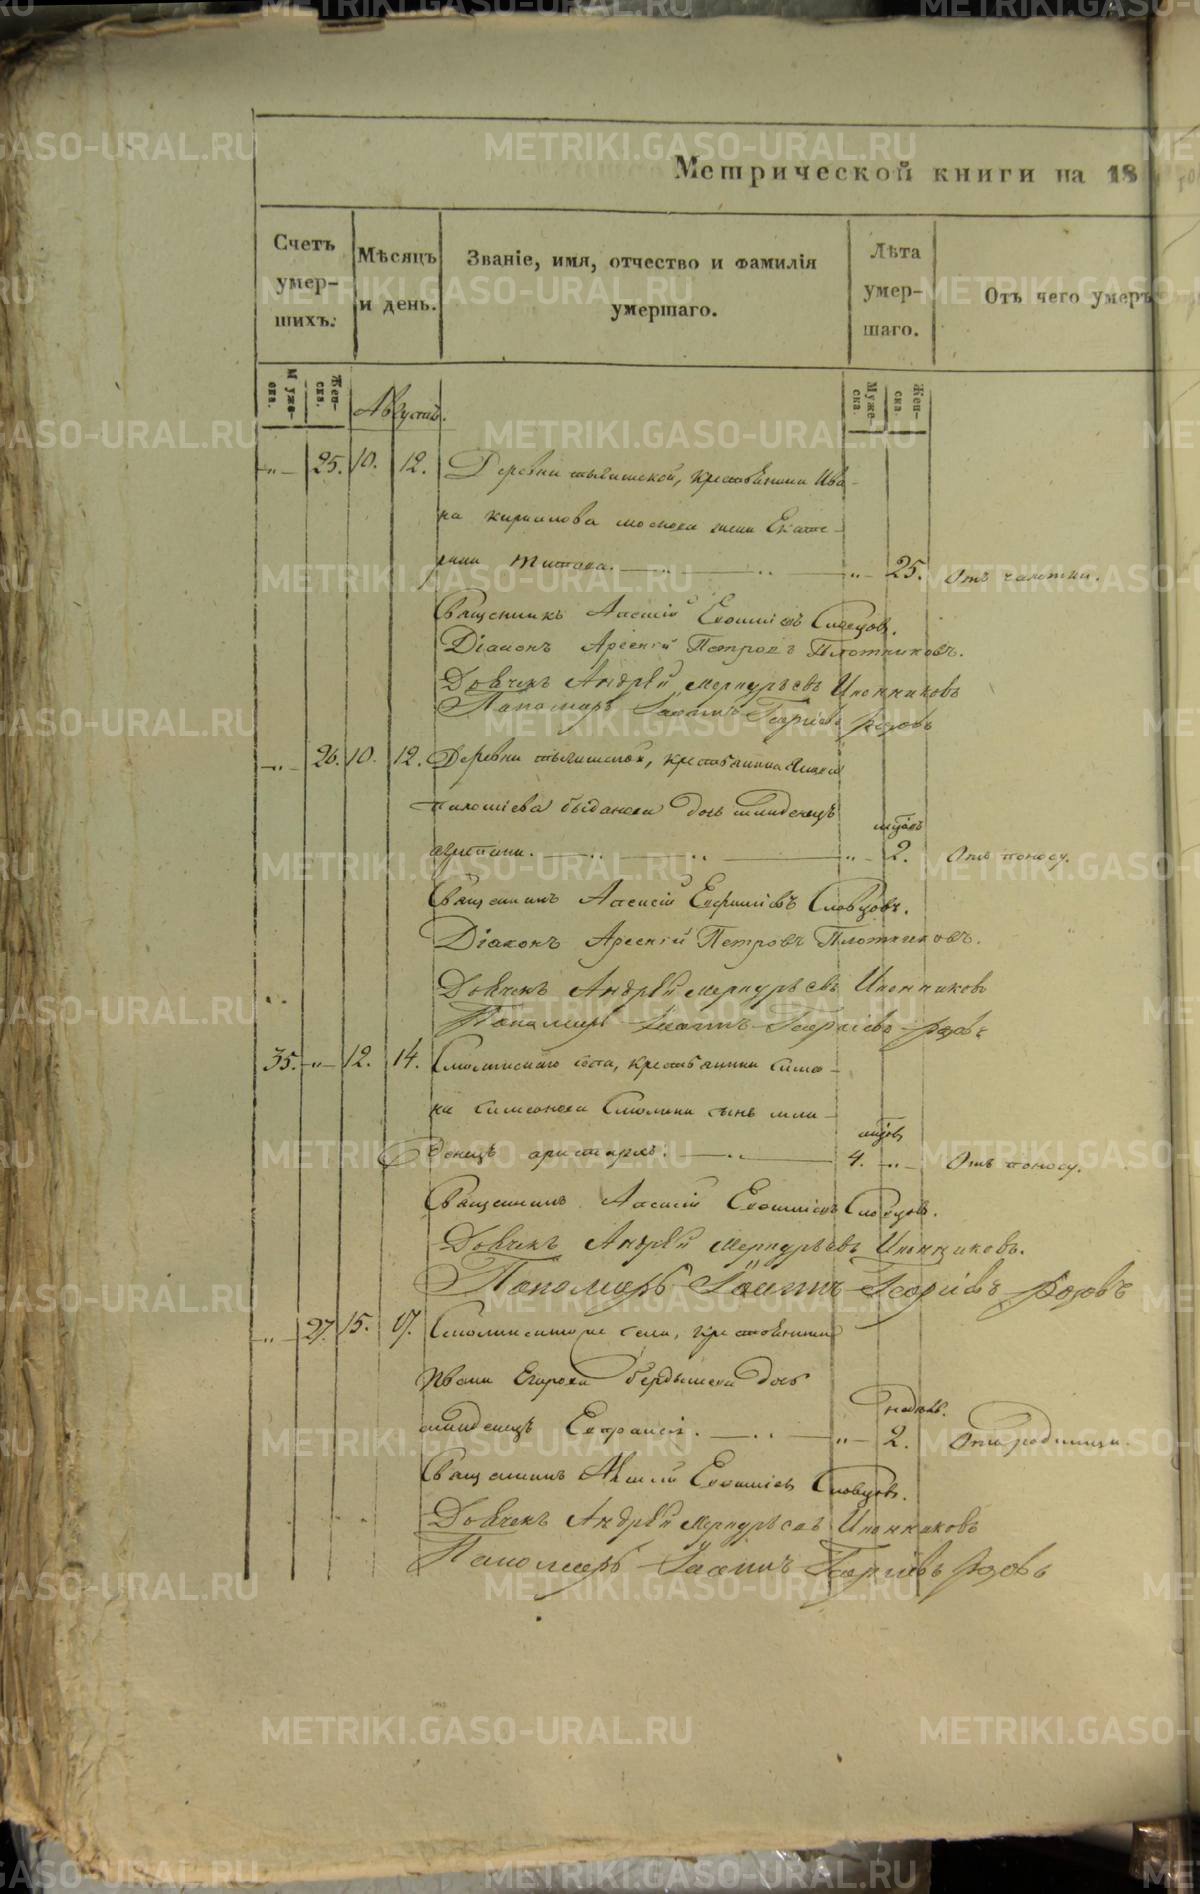 Метрической книги на 18
Счетъ умер-шихъ.
Мѣсяцъ и день.
Званіе, имя, отчество и фамилія умершаго.
Лѣта умер-шаго.
Отъ чего умеръ
Муже-ска.
Жен-ска.
Августъ.
Муже-ска.
Жен-ска.
„ 25. 10. 12. Деревни крестьянина Ива-
на Кирилова жена Екате-
рина Титова. „ 25. Отъ чахотки.
Священникъ Алексій Словцовъ.
Діаконъ Арсеній Петровъ Плотниковъ.
Дьячекъ Андрей Меркурьевъ Иконниковъ
Пономарь Іоаннъ Георгіевъ
„ 26. 10. 12. Деревни крестьянина
дочь младенецъ
мѣсяцъ
2. Отъ поносу.
Священникъ Алексій Словцовъ.
Діаконъ Арсеній Петровъ Плотниковъ.
Дьячекъ Андрей Меркурьевъ Иконниковъ
Пономарь Іоаннъ Георгіевъ
35. „ 12. 14. Смолинскаго села, крестьянина Симо-
на Симонова Смолина сынъ мла-
мѣсяцъ
денецъ Аристархъ. 4. „ Отъ поносу.
Священникъ Алексій Словцовъ.
Дьячекъ Андрей Меркурьевъ Иконниковъ.
Пономарь Іоаннъ Георгіевъ
„ 27. 15. 17. села, крестьянина
Ивана Егорова дочь
недель.
младенецъ „ 2. Отъ родимца.
Священникъ Алексій Словцовъ.
Дьячекъ Андрей Меркурьевъ Иконниковъ
Пономарь Іоаннъ Георгіевъ
METRIKI.GASO-URAL.RU